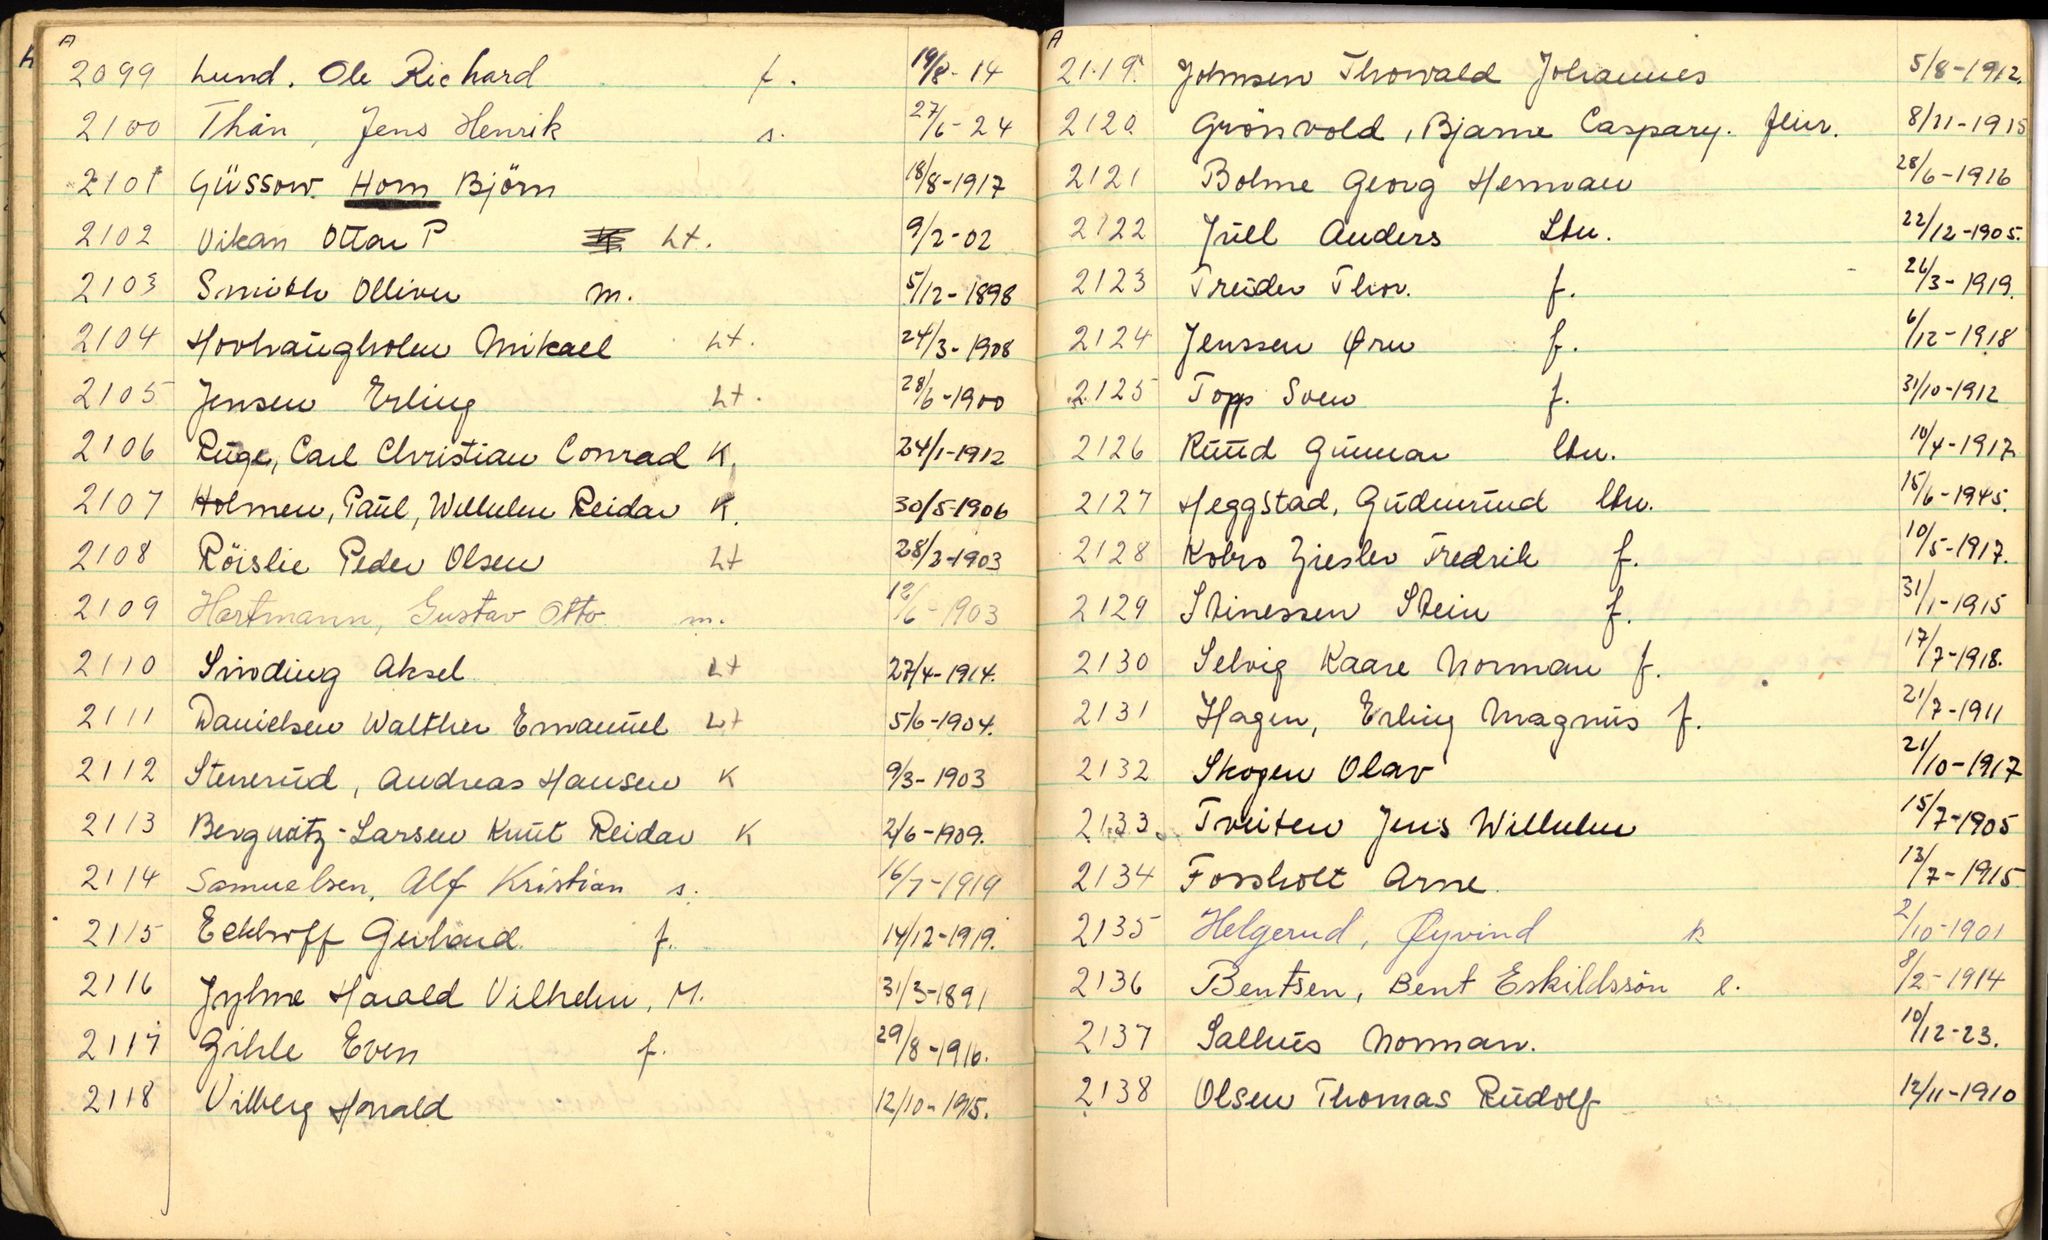 A
2099 Lund, Ole Richard f. 19/8-14
2100 Thån, Jens Henrik s. 27/6-24
2101 Güssow. Horn Björn 18/8-1917
2102 Vikan Ottar P Lt. 9/2-02
2103 Smith Olliver m. 5/12-1898
2104 Hovhaugholen Mikael Lt. 24/3-1908
2105 Jensen Erling Lt. 28/6-1900
2106 Ruge, Carl Christian Conrad K. 24/1-1912
2107 Holmen, Paul, Wilhelm Reidar K. 30/5-1906
2108 Röislie Peder Olsen Lt 1903
2109 Hartmann, Gustav Otto m. 1903
2110 Sinding Aksel Lt 27/4-1914.
2111 Danielsen Walther Emanuel Lt 5/6-1904.
2112 Stenerud, Andreas Hansen K 9/3-1903
2113 Bergwitz-Larsen Knut Reidar K 2/6-1909.
2114 Samuelsen, Alf Kristian s. 1919
2115 Eckhoff Gerhard f. 14/12-1919.
2116 Jyhne Harald Vilhelm, M. 31/3-1891
2117 Gihle Even f. 29/8-1916.
2118 Vilberg Harald 12/10-1915.
A
2119. Johnsen Thorvald Johannes 5/8-1912.
2120 Grönvold, Bjarne Caspary. 8/11-1915
2121 Bolme Georg Herman 28/6-1916
2122 Juell Anders Ltn. 22/12-1905.
2123 Treider Thor. f. 26/3-1919.
2124 Jenssen Ørn f. 6/12-1918
2125 Topp Sven f. 31/10-1912
2126 Ruud Gunnar ltn. 10/4-1917
2127 Heggstad, Gudmund ltn. 15/6-1945.
2128 Kobro Ziesler Fredrik f. 10/5-1917.
2129 Stinessen Stein f. 31/1-1915
2130 Selvig Kaare Norman f. 17/7-1918.
2131 Hagen, Erling Magnus f. 21/7-1911
2132 Skogen Olav 21/10-1917
2133 Tveiten Jens Wilhelm 15/7-1905
2134 Fossholt Arne 13/7-1915
2135 Helgerud, Øyvind k 2/10-1901
2136 Bentsen, Bent Eskildssön l. 8/2-1914
2137 Salhus Norman. 10/12-23.
2138 Olsen Thomas Rudolf 12/11-1910